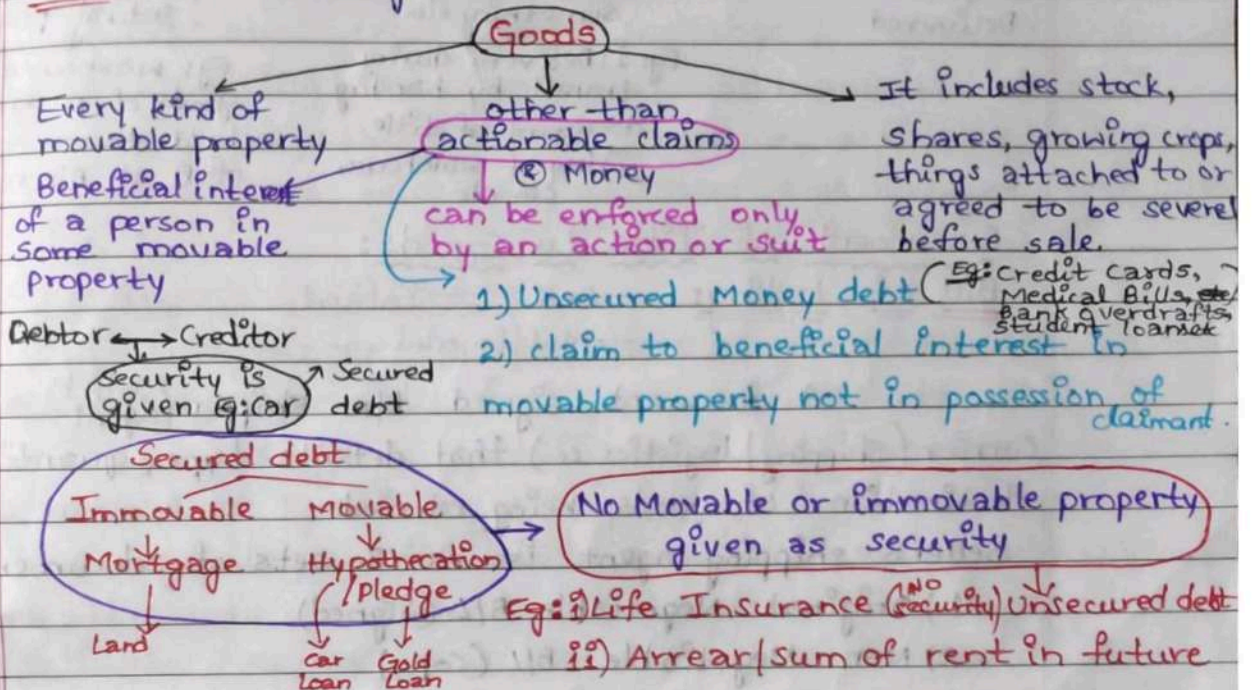 Goods
Every kind of
movable property
Beneficial interest
of a person in
some movable
property
other than
actionable claims
& Money
can be enforced only
by an action or suit
It includes stock,
shares, growing crops,
things attached to or
agreed to be severed
before sale.
1) Unsecured Money debt (Eg: Credit Cards,
Medical Bills, etc
Bank overdrafts,
student loans etc
2) claim to beneficial interest in
movable property not in possession of
claimant.
Debtor ↔ Creditor
Security is
given Eg: car
Secured
debt
Secured debt
Immovable Movable
Mortgage Hypothecation
/Pledge
Land
Car
loan
Gold
Loan
No Movable or immovable property
given as security
Eg: i) Life Insurance (NO security) Unsecured debt
ii) Arrear/sum of rent in future